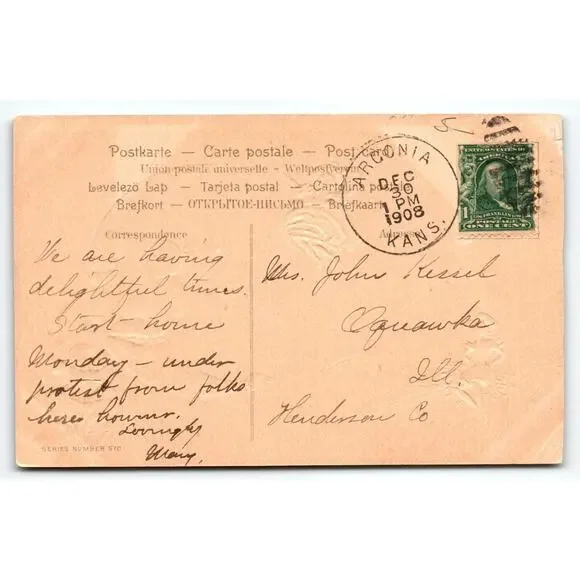 Postkarte — Carte postale — Post card
Union postale universelle — Weltpostverein
Levelező Lap — Tarjeta postal — Cartolina postale
Brefkort — ОТКРЫТОЕ-ПИСЬМО — Briefkaart
Correspondence
We are having
delightful times.
Start-home
Monday - under
protest from folks
here however.
Lovingly
Mary.
SERIES NUMBER 510
ARGONIA
DEC
30
1 PM
1908
KANS.
UNITED STATES OF
AMERICA
1
FRANKLIN
POSTAGE
ONE CENT
Mrs. John Kessel
Oquawka
Ill.
Henderson Co